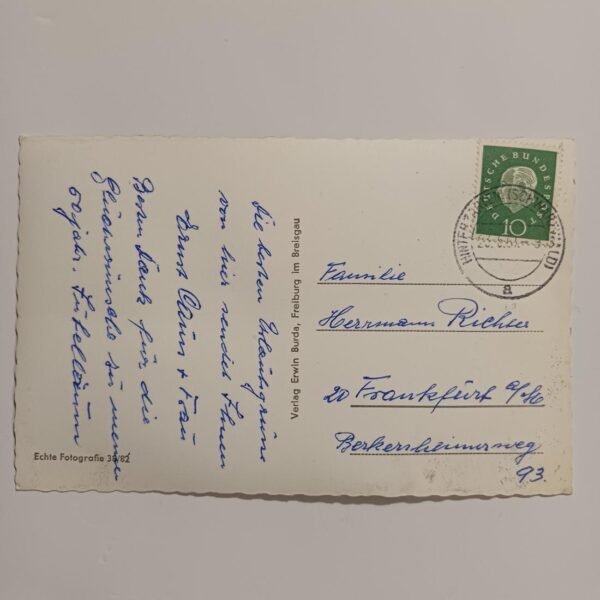 Die besten Urlaubsgrüsse
von hier sendet Ihnen
Ernst Claus + Frau
Besten Dank für die
Glückwünsche zu meinem
60 jähr.
Verlag Erwin Burda, Freiburg im Breisgau
Echte Fotografie 38/82
DEUTSCHE BUNDESPOST
10
a
Familie
Herrmann Richter
20 Frankfurt a/M
Berkersheimerweg
93.